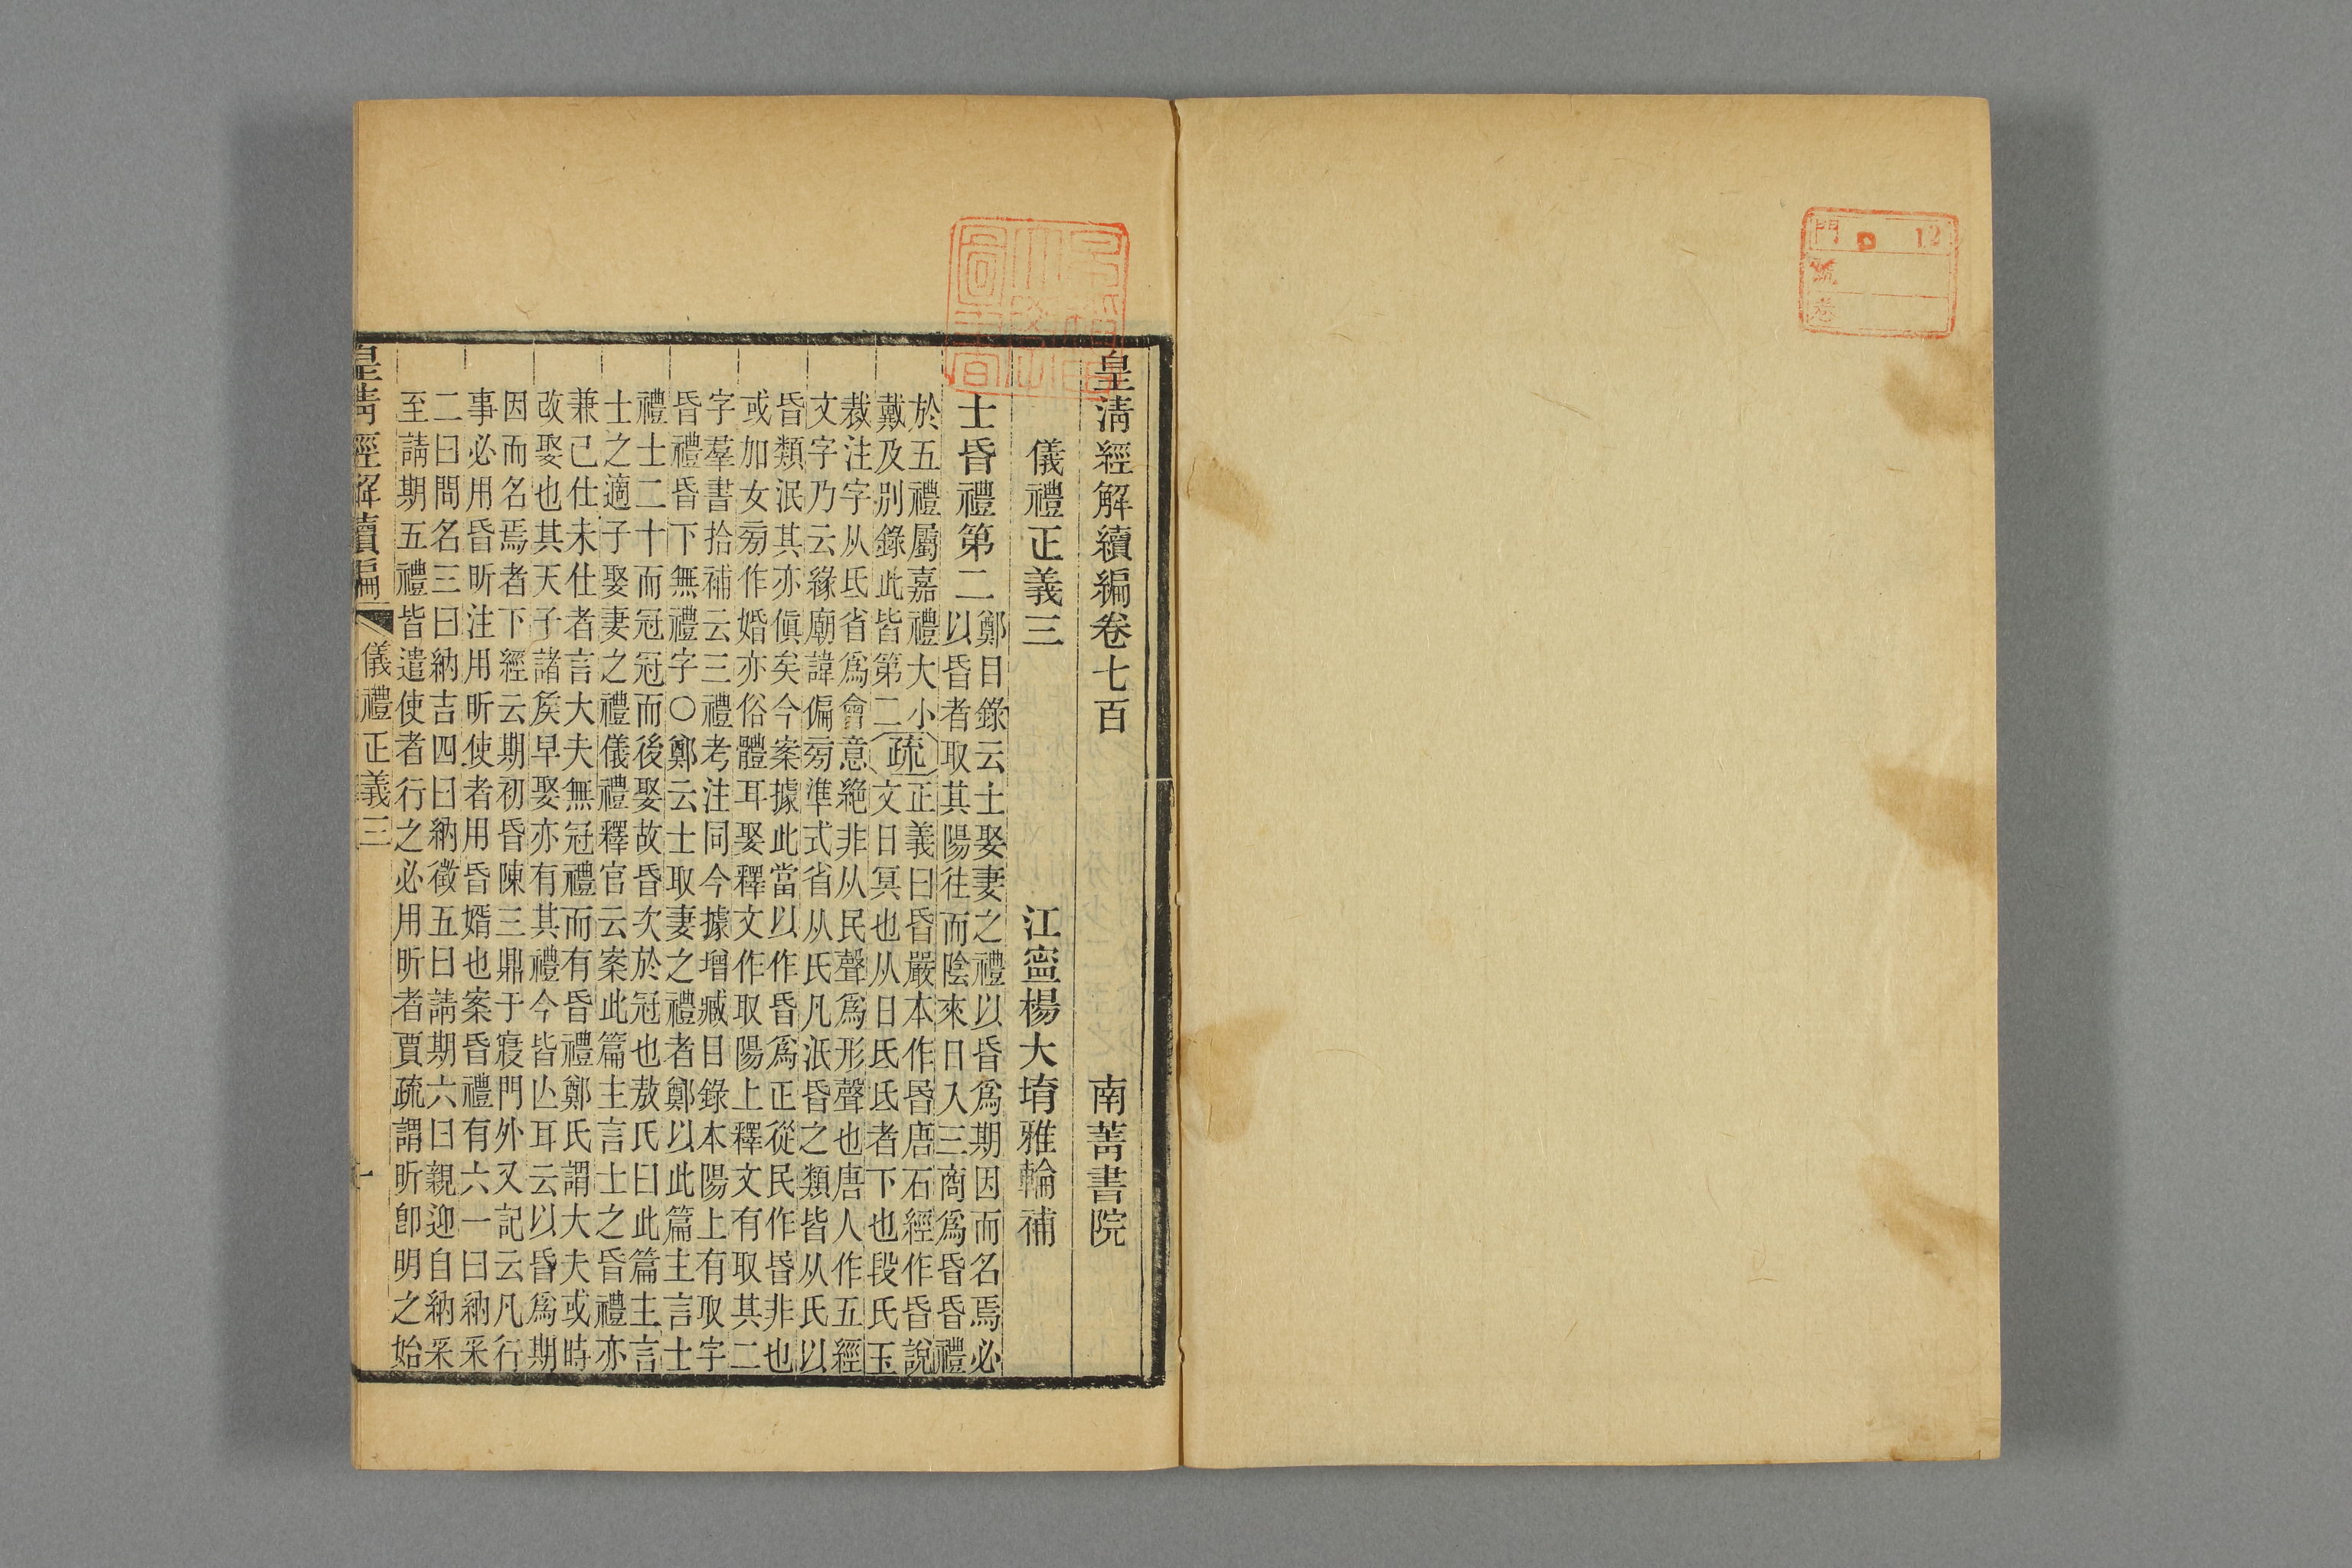 門 D 12
號
卷
皇淸經解續編卷七百 南菁書院
儀禮正義三 江寍楊大堉雅輪補
士昏禮第二
鄭目錄云士娶妻之禮以昏爲期因而名焉必
以昏者取其陽往而陰來日入三商爲昏昏禮
於五禮屬嘉禮大小
戴及別錄此皆第二
疏
正義曰昏嚴本作昬唐石經作昏說
文日冥也从日氐氐者下也段氏玉
裁注字从氐省爲會意絶非从民聲爲形聲也唐人作五經
文字乃云緣廟諱偏旁準式省从氏凡泯昏之類皆从氏以
昏類泯其亦傎矣今案據此當以作昏爲正從民作昬非也
或加女旁作婚亦俗體耳娶釋文作取陽上釋文有取其二
字羣書拾補云三禮考注同今據增臧目錄本陽上有取字
昏禮昏下無禮字○鄭云士取妻之禮者鄭以此篇主言士
禮士二十而冠冠而後娶故昏次於冠也敖氏曰此篇主言
士之適子娶妻之禮儀禮釋官云案此篇主言士之昏禮亦
兼已仕未仕者言大夫無冠禮而有昏禮鄭氏謂大夫或時
改娶也其天子諸矦早娶亦有其禮今皆亾耳云以昏爲期
因而名焉者下經云期初昏陳三鼎于寢門外又記云凡行
事必用昏昕注用昕使者用昏婿也案昏禮有六一曰納采
二曰問名三曰納吉四曰納徵五曰請期六曰親迎自納采
至請期五禮皆遣使者行之必用昕者賈疏謂昕卽明之始
皇淸經解續編 儀禮正義三 一